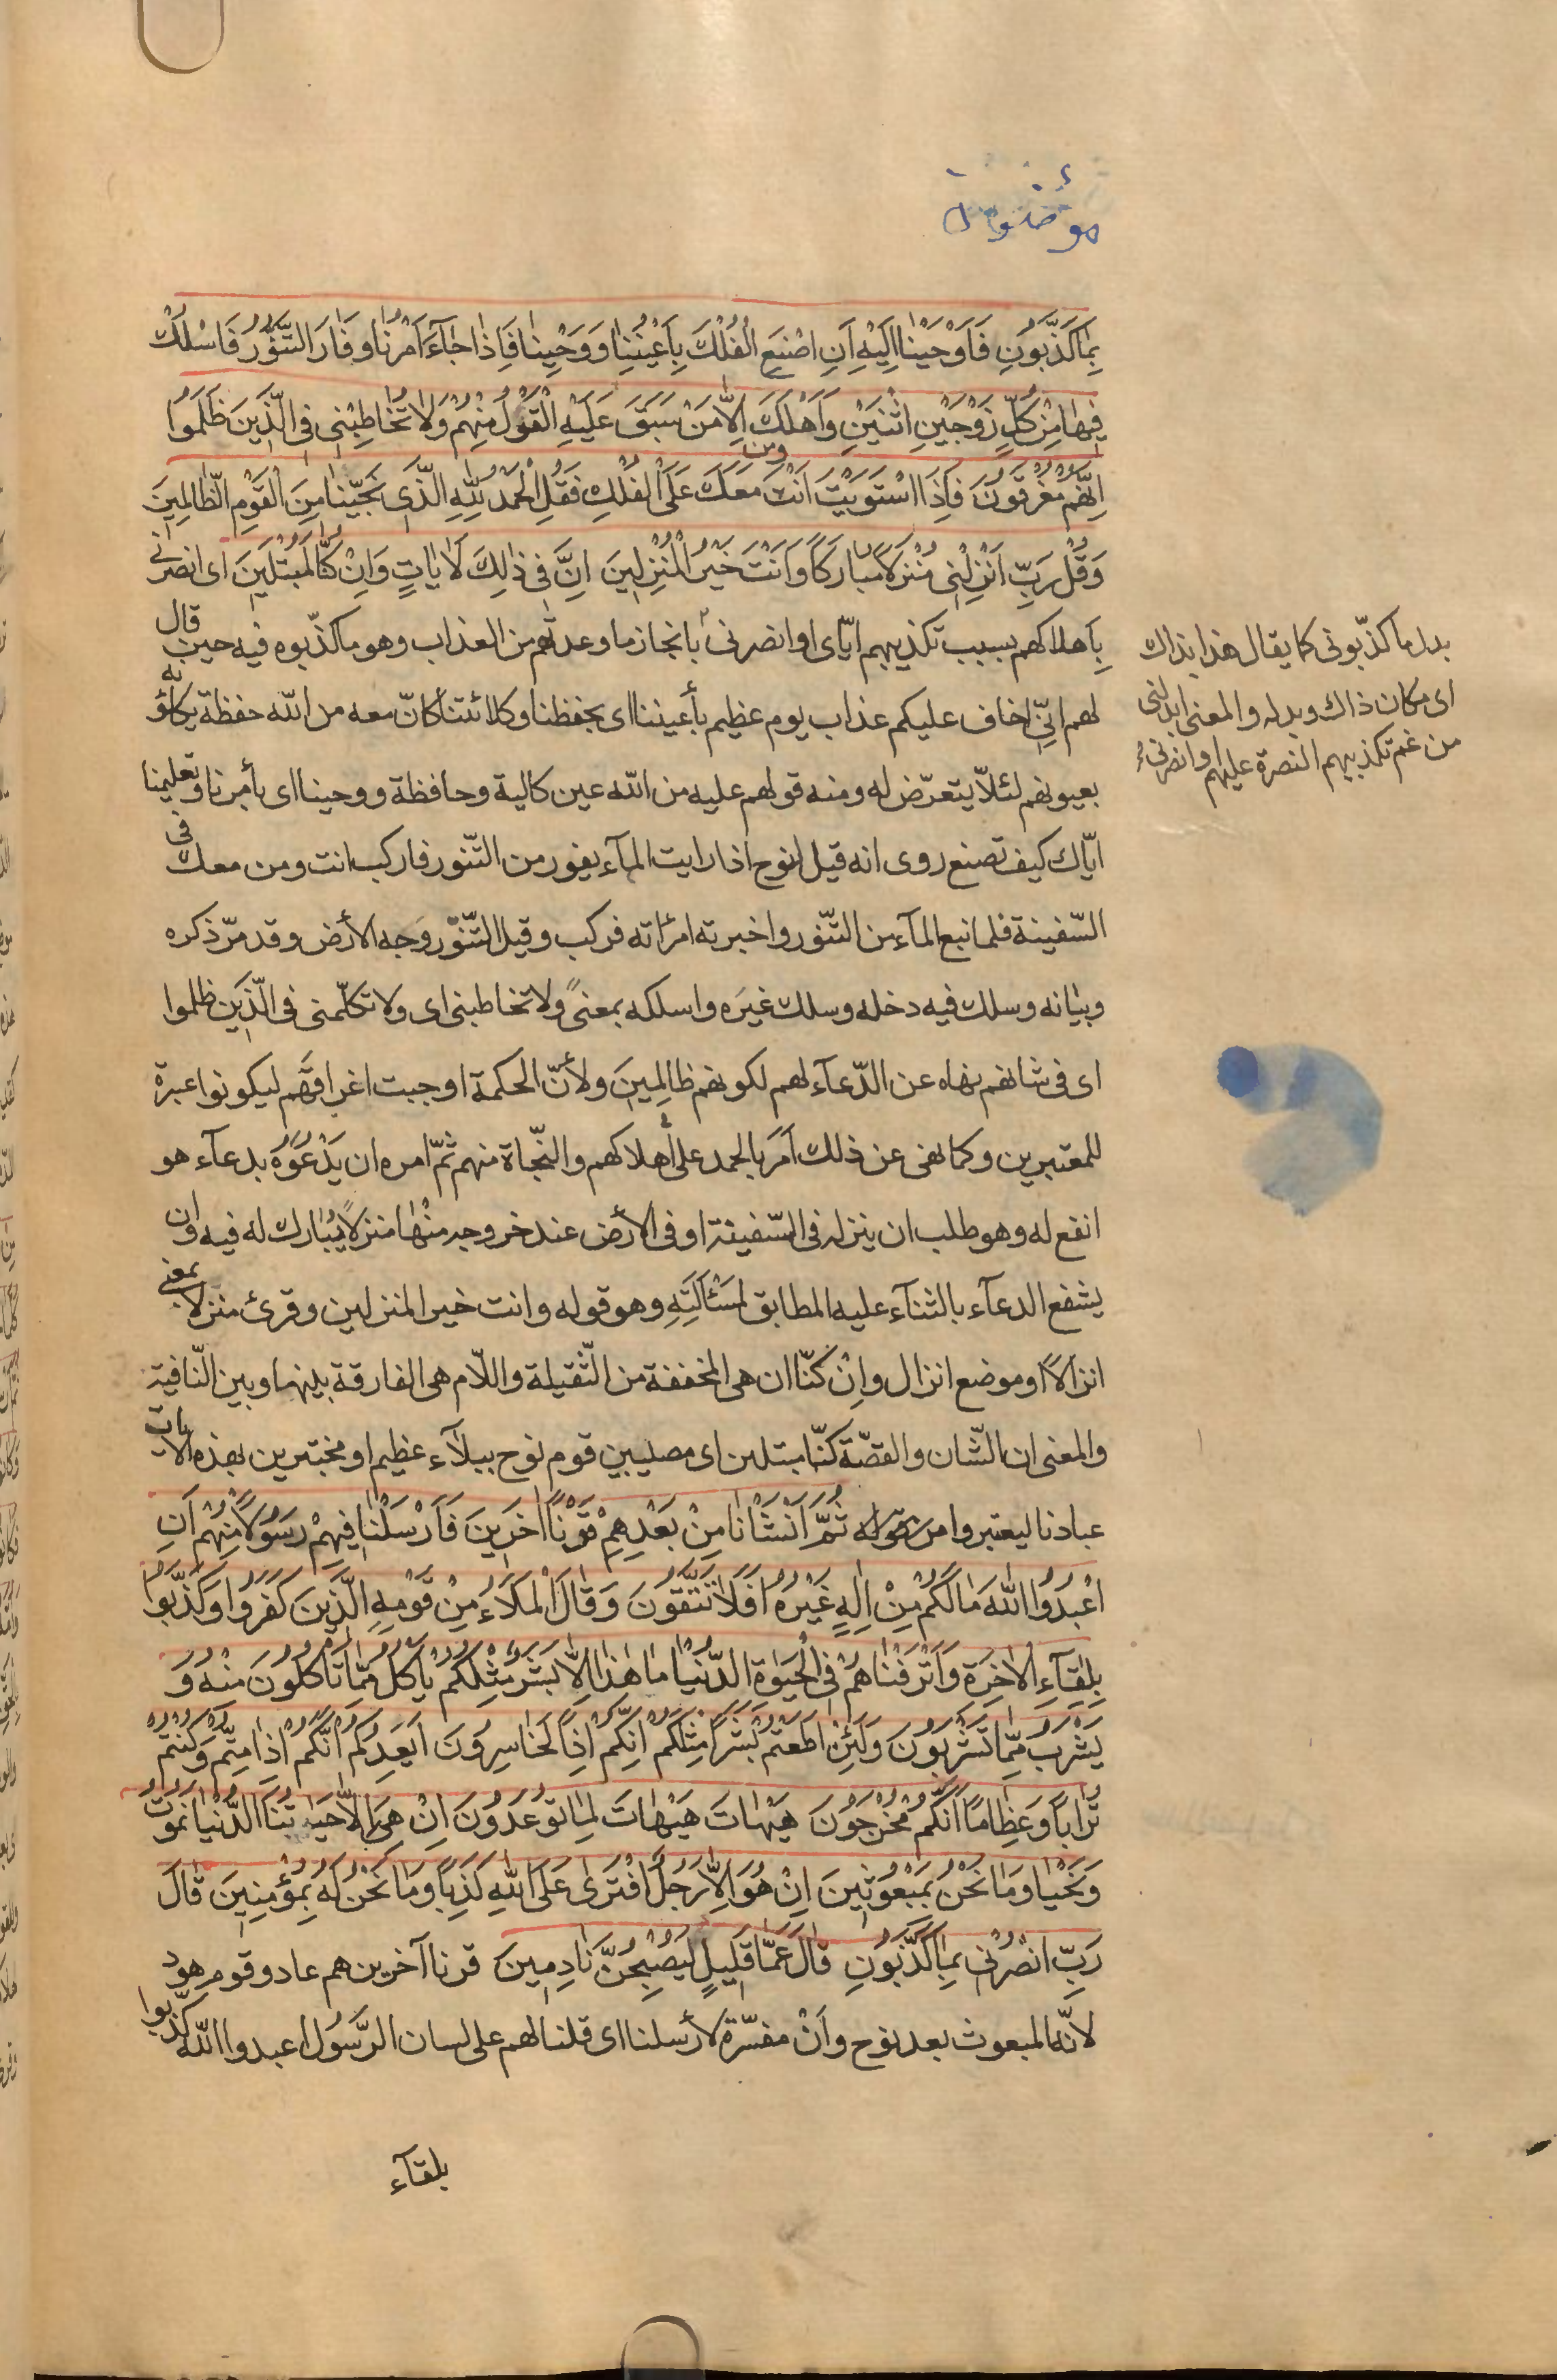 بِمَا كَذَّبُونِ فَاَوْحَيْنا اِلَيْهِ اَنِ اصْنَعِ الْفُلْكَ بِاَعْيُنِنا وَوَحْيِنا فَاِذا جآءَ اَمْرُنا وَفارَ التَّنُّورُ فَاسْلُكْ
فِيها مِنْ كُلٍّ زَوْجَيْنِ اثْنَيْنِ وَاَهْلَكَ اِلّا مَنْ سَبَقَ عَلَيْهِ الْقَوْلُ مِنْهُمْ وَلا تُخاطِبْنِي فِي الَّذِينَ ظَلَمُوا
اِنَّهُمْ مُغْرَقُونَ فَاِذَا اسْتَوَيْتَ اَنْتَ وَمَنْ مَعَكَ عَلَى الْفُلْكِ فَقُلِ الْحَمْدُ لِلّهِ الَّذِي نَجّينا مِنَ الْقَوْمِ الظّالِمِينَ
وَقُلْ رَبِّ اَنْزِلْنِي مُنْزَلاً مُبارَكاً وَاَنْتَ خَيْرُ الْمُنْزِلِينَ اِنَّ فِي ذلِكَ لَاياتٍ وَاِنْ كُنّا لَمُبْتَلِينَ اى انصرنى
بِاَهلاكهم بسبب تكذيبهم ايّاى او انصرنى بانجاز ما وعدتهم من العذاب وهو ما كذّبوه فيه حين قال
لهم انّى اخاف عليكم عذاب يوم عظيم بأعيننا اى بحفظنا وكلائتنا كانّ معه من اللّه حفظة يكلؤنه
بعيونهم لئلّا يتعرّض له ومنه قولهم عليه من اللّه عين كالية وحافظة ووحينا اى بأمرنا وتعليمنا
ايّاك كيف تصنع روى انه قيل لنوح اذا رايت المآء يفور من التّنور فاركب انت ومن معك فى
السّفينة فلما نبع المآء من التنّور واخبرته امرأته فركب وقيل التّنّور وَجه الأرض وقد مرّ ذكره
وبيانه وسلك فيه دخله وسلك غيَره واسلكه بمعنىً ولا تخاطبنى اى ولا تكلّمنى فى الّذين ظلموا
اى فى شانهم نهاه عن الدّعآء لهم لكونهم ظالِمِينَ ولأنّ الحكمة اوجبت اغراقهم ليكونوا عبرة
للمعتبرين وكما نهى عن ذلك اَمَر بالحمد على أهلاكهم والنّجاة منهم ثمّ امره ان يَدْعُوَه بدعآء هو
انفع له وهو طلب ان ينزله فى السّفينة او فى الأرض عند خروجه منْها منزلاً يُبارك له فيه وان
يشفع الدعآء بالثنآء عليه المطابق لمسْألَتِهِ وهو قوله وانت خير المنزلين وقرئ منزلا بمعنى
انزالاً او موضع انزال واِنْ كنّا ان هى المخففة من الثّقيلة واللّام هى الفارقة بينها وبين النّافية
والمعنى ان الشّان والقصّة كنّا مبتلين اى مصيبين قوم نوح ببلآء عظيم او مختبرين بهذه الايات
عبادنا ليعتبروا قوله ثُمَّ اَنْشَاْنا مِنْ بَعْدِهِمْ قَرْناً اخَرِينَ فَاَرْسَلْنا فِيهِمْ رَسُولاً مِنْهُمْ اَنِ
اعْبُدُوا اللّهَ ما لَكُمْ مِنْ اِلهٍ غَيْرُهُ اَفَلا تَتَّقُونَ وَقالَ الْمَلَاءُ مِنْ قَوْمِهِ الَّذِينَ كَفَرُوا وَكَذَّبُوا
بِلِقآءِ الْاخِرَةِ وَاَتْرَفْناهُمْ فِي الْحَيوةِ الدُّنْيا ما هذا اِلّا بَشَرٌ مِثْلُكُمْ يَاْكُلُ مِمّا تَاْكُلُونَ مِنْهُ وَ
يَشْرَبُ مِمّا تَشْرَبُونَ وَلَئِنْ اَطَعْتُمْ بَشَراً مِثْلَكُمْ اِنَّكُمْ اِذاً لَخاسِرُونَ اَيَعِدُكُمْ اَنَّكُمْ اِذا مِتُّمْ وَكُنْتُمْ
تُراباً وَعِظاماً اَنَّكُمْ مُخْرَجُونَ هَيْهاتَ هَيْهاتَ لِما تُوعَدُونَ اِنْ هِيَ اِلّا حَياتُنَا الدُّنْيا نَمُوتُ
وَنَحْيا وَما نَحْنُ بِمَبْعُوثِينَ اِنْ هُوَ اِلّا رَجُلٌ افْتَرى عَلَى اللّهِ كَذِباً وَما نَحْنُ لَهُ بِمُؤْمِنِينَ قالَ
رَبِّ انْصُرْنِي بِما كَذَّبُونِ قالَ عَمّا قَلِيلٍ لَيُصْبِحُنَّ نادِمِينَ قرنا آخرين هم عاد وقوم هود
لانّه المبعوث بعد نوح واَنْ مفسّرة لأرسلنا اى قلنا لهم على لسان الرّسُول اعبدوا اللّه كذّبوا
بلقآء
بدل ما كذّبونى كما يقال هذا بذاك
اى مكان ذاك وبدله والمعنى ابدلنى
من غم تكذيبهم النصرة عليهم او انصرنى